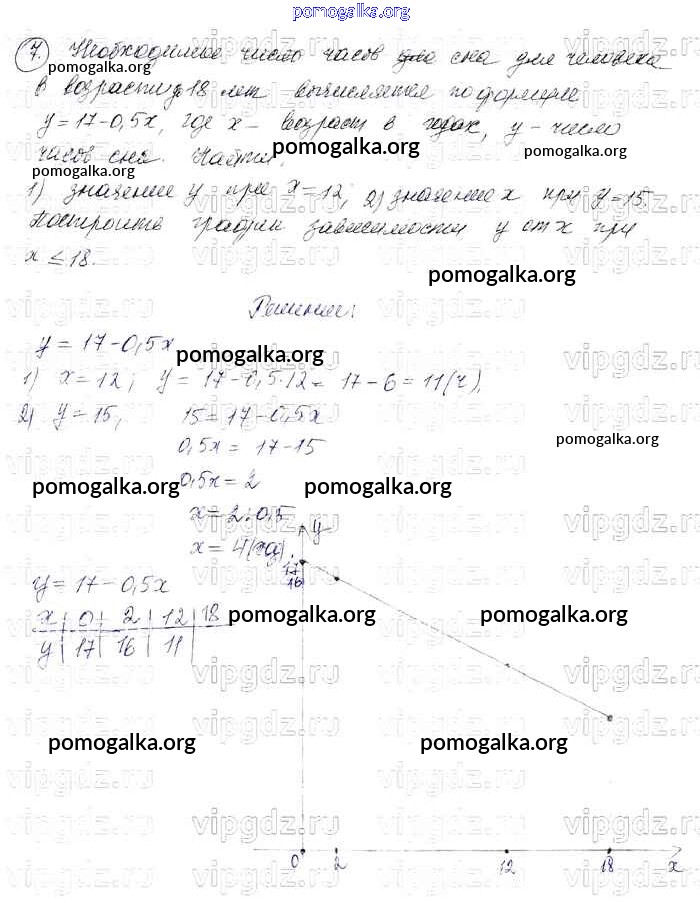 pomogalka.org
7. Необходимое число часов сна для человека
pomogalka.org
в возрасте до 18 лет вычисляется по формуле
y = 17 - 0,5x, где x - возраст в годах, y - число
pomogalka.org
pomogalka.org
часов сна. Найти:
pomogalka.org
1) значение y при x = 12; 2) значение x при y = 15.
Построить график зависимости y от x при
x ≤ 18.
pomogalka.org
Решение:
y = 17 - 0,5x
pomogalka.org
1) x = 12; y = 17 - 0,5·12 = 17 - 6 = 11 (ч).
2) y = 15; 15 = 17 - 0,5x
0,5x = 17 - 15
pomogalka.org
0,5x = 2
pomogalka.org
pomogalka.org
x = 2:0,5
x = 4
y
17
16
y = 17 - 0,5x
x | 0 | 2 | 12 | 18
pomogalka.org
pomogalka.org
y | 17 | 16 | 11 |
pomogalka.org
pomogalka.org
0 2 12 18 x
vipgdz.ru